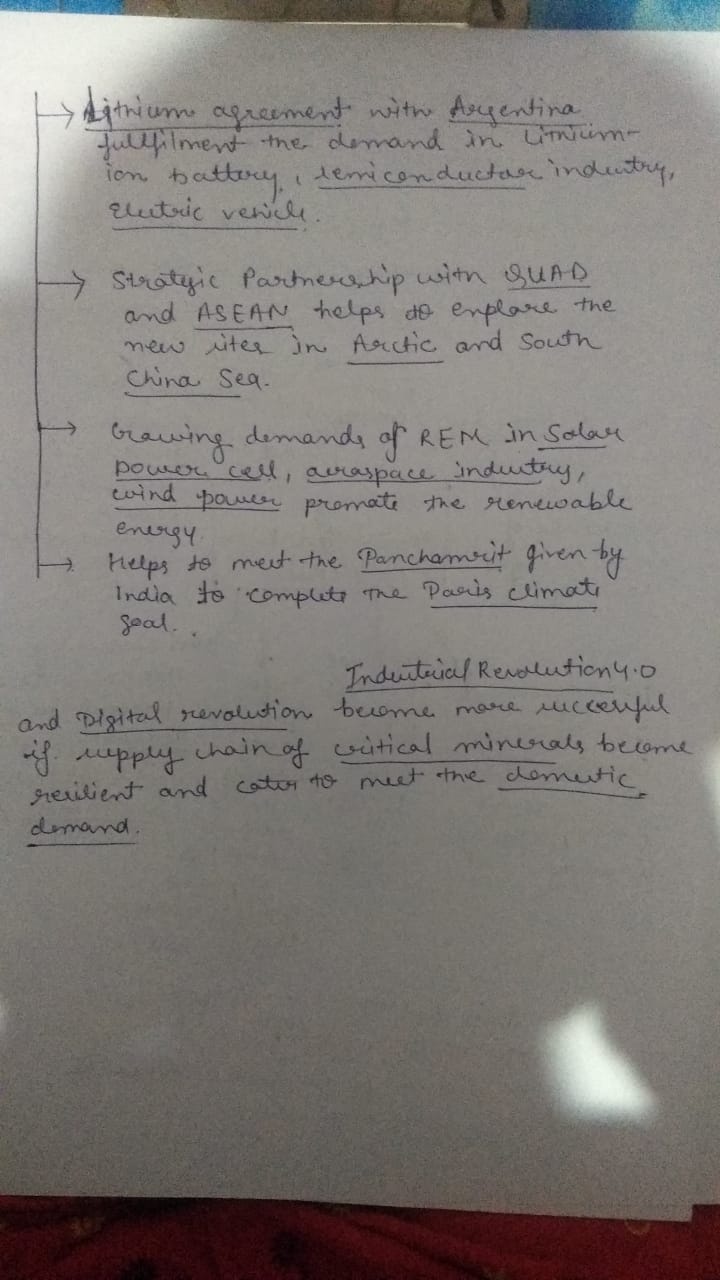 Lithium agreement with Argentina
fullfilment the demand in Lithium-
ion battery, semiconductor industry,
Electric vehicle.
Strategic Partnership with QUAD
and ASEAN helps to explore the
new sites in Arctic and South
China Sea.
Growing demands of REM in Solar
power cell, aeraspace industry,
wind power promote the renewable
energy
Helps to meet the Panchamrit given by
India to complete the Paris climate
goal.
Industrial Revolution 4.0
and Digital revolution become more successful
if supply chain of critical minerals become
resilient and cater to meet the domestic
demand.